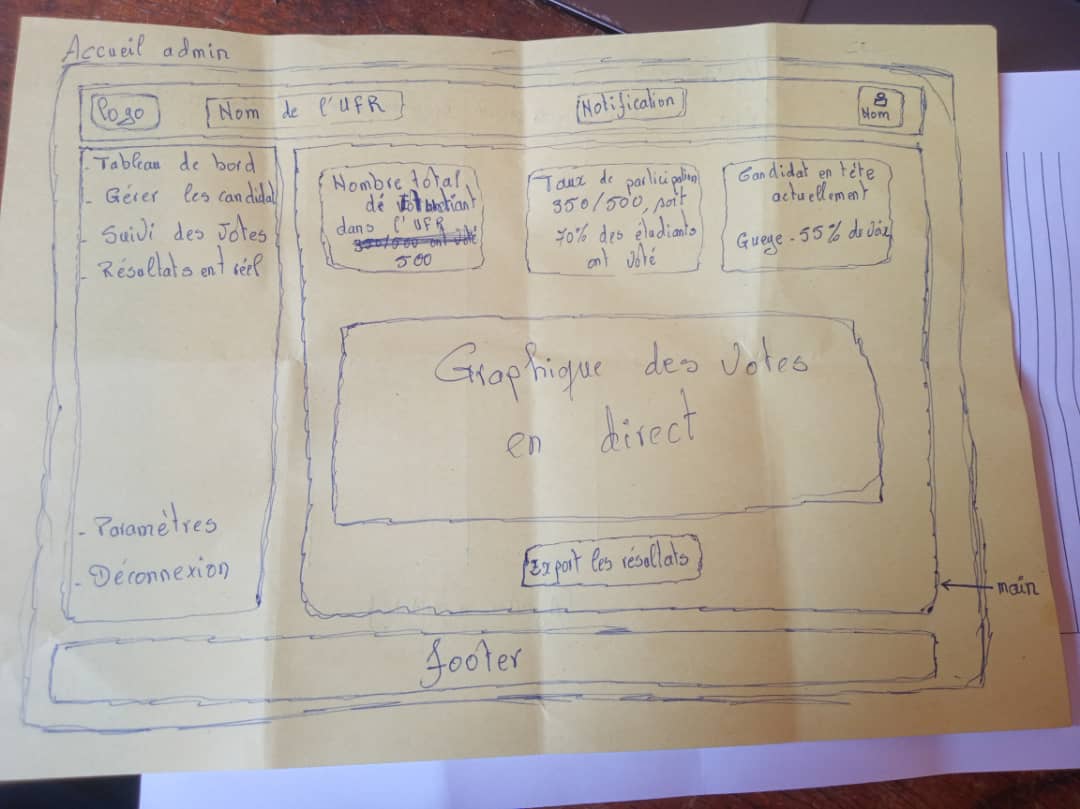 Accueil admin
Logo
Nom de l'UFR
Notification
Nom
- Tableau de bord
- Gérer les candidat
- Suivi des Votes
- Résultats en t réel
- Paramètres
- Déconnexion
Nombre total
dé
dans l'UFR
350/500 ont voté
500
Taux de participation
350/500, soit
70% des étudiants
ont voté
Candidat en tête
actuellement
Gueye - 55% de voix
Graphique des Votes
en direct
Export les résultats
main
footer